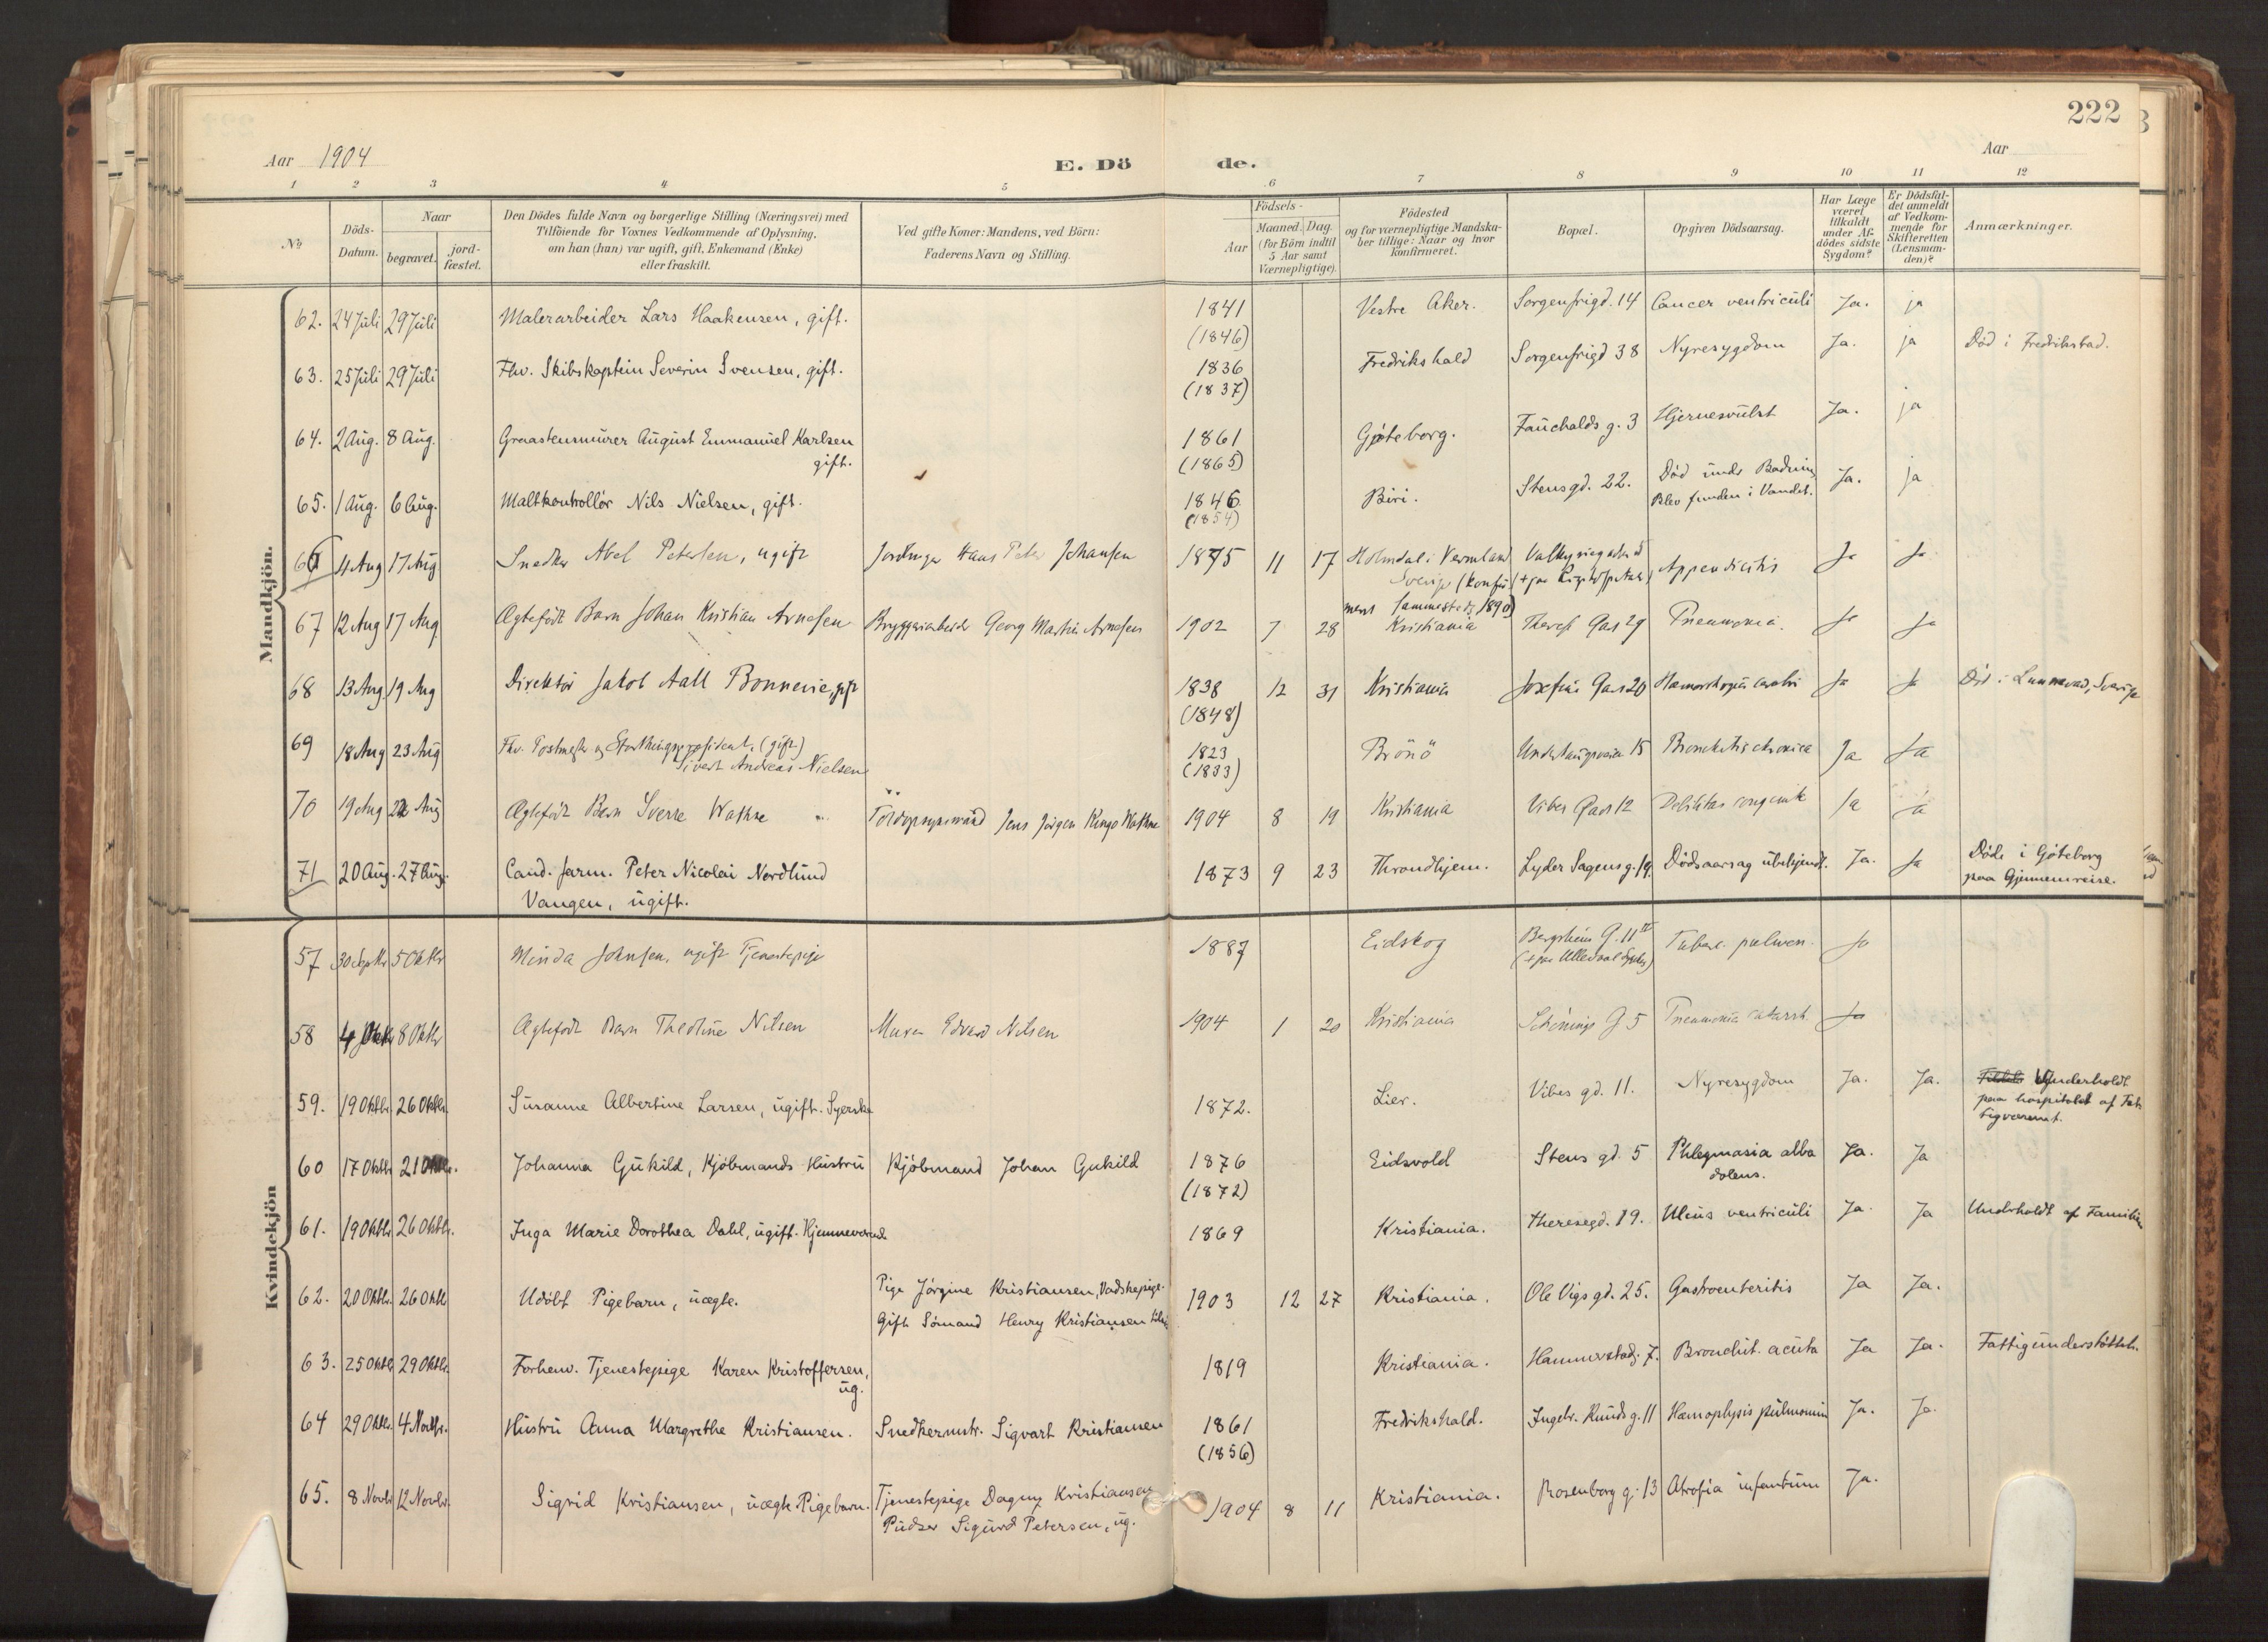 222
Aar 1904
E. Dö de.
Aar
1 2 3 4 5 6 7 8 9 10 11 12
№
Döds-Datum.
Naar
begravet.
jord-fæstet.
Den Dödes fulde Navn og borgerlige Stilling (Næringsvei) med
Tilföiende for Voxnes Vedkommende af Oplysning,
om han (hun) var ugift, gift, Enkemand (Enke)
eller fraskilt.
Ved gifte Koner: Mandens, ved Börn:
Faderens Navn og Stilling.
Födsels-
Aar
Maaned. Dag.
(for Börn indtil
5 Aar samt
Værnepligtige).
Födested
og for værnepligtige Mandska-
ber tillige: Naar og hvor
konfirmeret.
Bopæl.
Opgiven Dödsaarsag.
Har Læge
været
tilkaldt
under Af-
dödes sidste
Sygdom?
Er Dödsfal-
det anmeldt
af Vedkom-
mende for
Skifteretten
(Lensman-
den)?
Anmærkninger.
Mandkjön.
62. 24 Juli 29 Juli Malerarbeider Lars Haakensen, gift. 1841 Vestre Aker. Sorgenfrigd. 14 Cancer ventriculi Ja. ja
(1846)
63. 25 Juli 29 Juli Fhv. Skibskaptein Severin Svensen, gift. 1836 Fredrikshald Sorgenfrigd 38 Nyresygdom Ja. ja Död i Fredrikstad.
(1837)
64. 2 Aug. 8 Aug. Graastensmurer August Emmanuel Karlsen 1861 Gøteborg. Fauchalds g. 3 Hjernesvulst Ja. ja
gift. (1865)
65. 1 Aug. 6 Aug. Maltkontrollör Nils Nielsen, gift. 1846 Biri. Stensgd. 22. Död under Badning Ja. ja
(1854) Blev funden i Vandet.
66 4 Aug 17 Aug Snedker Abel Petersen, ugift Hans Peter Johansen 1875 11 17 Holmdal i Vermland Appendicitis Ja Ja
Sverige (konfir-
meret sammesteds 1890)
67 12 Aug 17 Aug Ægtefödt Barn Johan Kristian Arnesen Bryggeriarbeider Georg Martin Arnesen 1902 7 28 Kristiania Therese Gade 29 Pneumonia. Ja Ja
68 13 Aug 19 Aug Direktör Jakob Aall Bonnevie, gift 1838 12 31 Kristiania Josefine Gade 20 Hæmorrhagia cerebri Ja Ja Död i Sverige
(1848)
69 18 Aug 23 Aug Fhv. Postmester og Storthingspræsident (gift) 1823 Brönö 15 Bronchitis chronica Ja Ja
Sivert Andreas Nielsen (1833)
70 19 Aug Aug Ægtefödt Barn Sverre Wathne Jens Jörgen Kinge Wathne 1904 8 19 Kristiania Vibes Gade 12 Debilitas congenita Ja Ja
71 20 Aug. 27 Aug. Cand. farm. Peter Nicolai Nordlund 1873 9 23 Throndhjem. Lyder Sagens g. 19. Dödsaarsag ubekjendt. Ja. Ja Döde i Göteborg
Vangen, ugift. paa Gjennemreise.
Kvindekjön
57 30 Septbr 5 Oktbr Minda Johnsen, ugift Tjenestepige 1887 Eidskog Bergslien G. 11 Tuberc. pulmon. Ja
(+ paa Ullevaal Sygehus)
58 4 Oktbr 8 Oktbr Ægtefödt Barn Theoline Nilsen Murer Edvard Nilsen 1904 1 20 Kristiania Schönings G 5 Pneumonia catarrh. Ja
59. 19 Oktbr. 26 Oktbr. Susanne Albertine Larsen, ugift. Syerske 1872. Lier. Vibes gd. 11. Nyresygdom Ja. Ja. Underholdt
paa hospitalet af Fat-
tigvæsenet.
60 17 Oktbr. 21 Oktbr. Johanna Gukild, Kjöbmands Hustru Kjöbmand Johan Gukild 1876 Eidsvold Stens gd. 5 Phlegmasia alba Ja. Ja
(1872) dolens.
61. 19 Oktbr. 26 Oktbr. Inga Marie Dorothea Dahl, ugift. Hjemmeværende 1869 Kristiania. Theresegd. 19. Ulcus ventriculi Ja. Ja Underholdt af Familien
62. 20 Oktbr. 26 Oktbr Udöbt Pigebarn, uægte. Pige Jörgine Kristiansen, Vadskepige. 1903 12 27 Kristiania. Ole Vigs gd. 25. Gastroenteritis Ja Ja.
Gift Sömand Henry Kristiansen
63. 25 Oktbr 29 Oktbr. Forhenv. Tjenestepige Karen Kristoffersen, 1819 Kristiania. Hammerstadg. 7. Bronchit. acuta Ja Ja. Fattigunderstöttet.
ug.
64 29 Oktbr. 4 Novbr. Hustru Anna Margrethe Kristiansen. Snedkermstr. Sigvart Kristiansen 1861 Fredrikshald. Ingebr. Kunds g. 11 Hæmoptysis pulmonum Ja. Ja.
(1856)
65. 8 Novbr 12 Novbr. Sigrid Kristiansen, uægte Pigebarn. Tjenestepige Dagny Kristiansen 1904 8 11 Kristiania. Rosenborg g. 13 Atrofia infantum Ja.
Pudser Sigurd Petersen, ug.